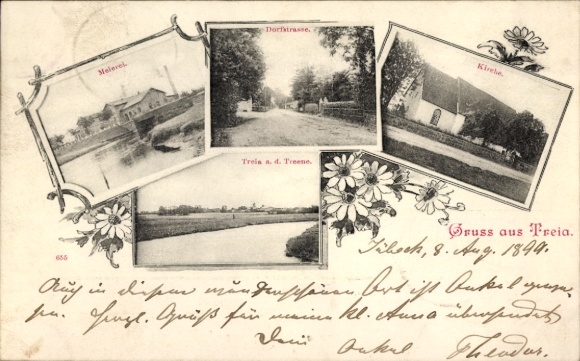 Meierei.
Dorfstrasse.
Kirche.
Treia a. d. Treene.
Gruss aus Treia.
655
Lübeck, 8. Aug. 1899.
Auch in diesem wunderschönen Ort ist Onkel gewe-
sen. Herzl. Gruß für meine kl. Anna übersendet
Dein Onkel Theodor.